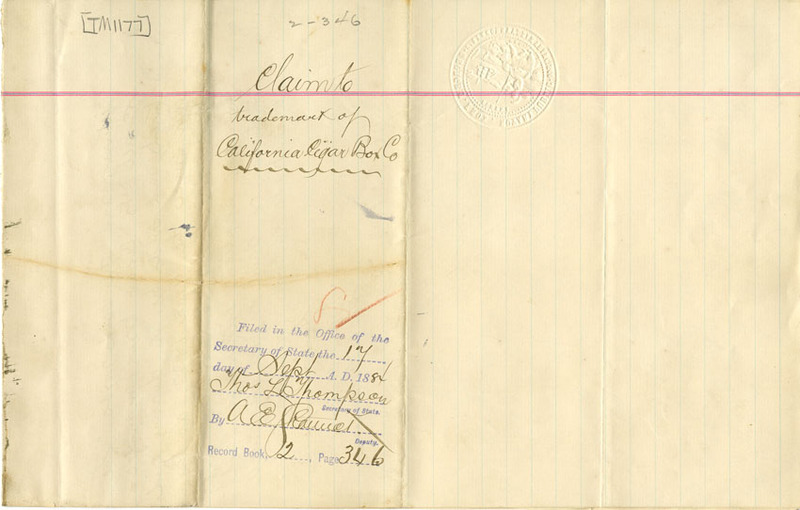 [TM1177]
2-346
Claim to
trademark of
California Cigar Box Co
Filed in the Office of the
Secretary of State the 17
day of Sept A. D. 188
Thos L Thompson
Secretary of State.
By A E
Deputy.
Record Book, 2, Page 346